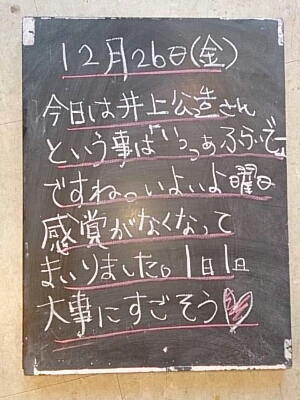 12月26日(金)
今日は井上公造さん
という事は「いっつあふらいでー」
ですね。いよいよ曜日
感覚がなくなって
まいりました。1日1日
大事にすごそう♡